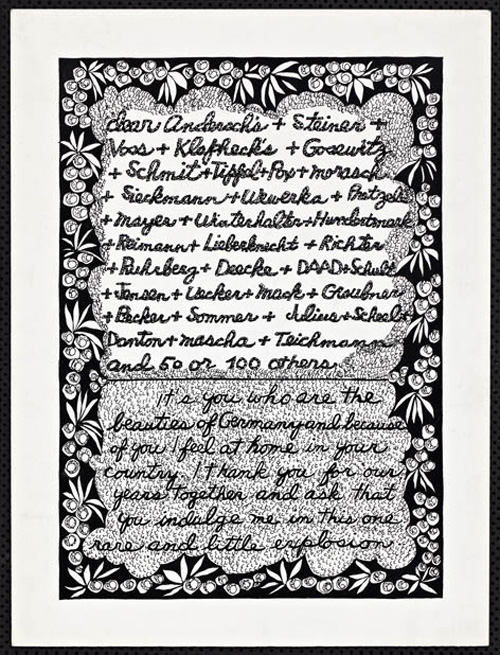 dear Andersch's + Steiner +
Voss + Klapheck's + Gosewitz
+ Schmit + Tippl + Pox + morasch
+ Sieckmann + Wewerka + Pretzels
+ mayer + Winterhalter + Hundertmark
+ Reimann + Lieberknecht + Richter
+ Ruhrberg + Deecke + DAAD + Schult
+ Jensen + Uecker + Mack + Graubner
+ Becker + Sommer + Julius +
Danton + mascha + Teichmann
and 50 or 100 others.
it's you who are the
beauties of Germany and because
of you I feel at home in your
country. I thank you for our
years together and ask that
you indulge me in this one
rare and little explosion